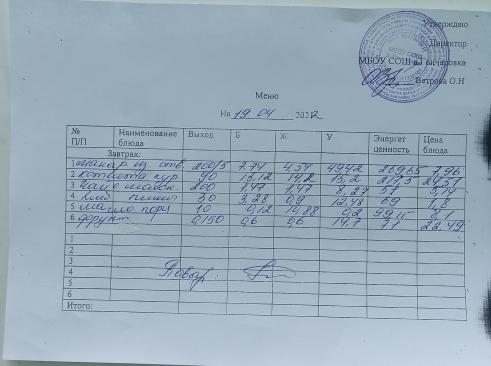 Утверждаю
Директор
МБОУ СОШ д Гончаровка
Ветрова О.Н
Меню
На 19 04 2022
№ П/П Наименование блюда Выход Б Ж У Энергет ценность Цена блюда
Завтрак:
1 макар из отв 200/5 7,74 4,54 4942
2 котлета кур 90 13,12 14,2 15,2
3 200 1,47 1,47 8,27 51
4 хлеб пшен 30 3,28 0,9 12,48 69 1,8
5 масло порц 10 0,12 10,88 0,2
6 фрукт 0,150 0,6 0,6 14,7 71 22,49
1
2
3
4 Повар:
5
6
Итого: